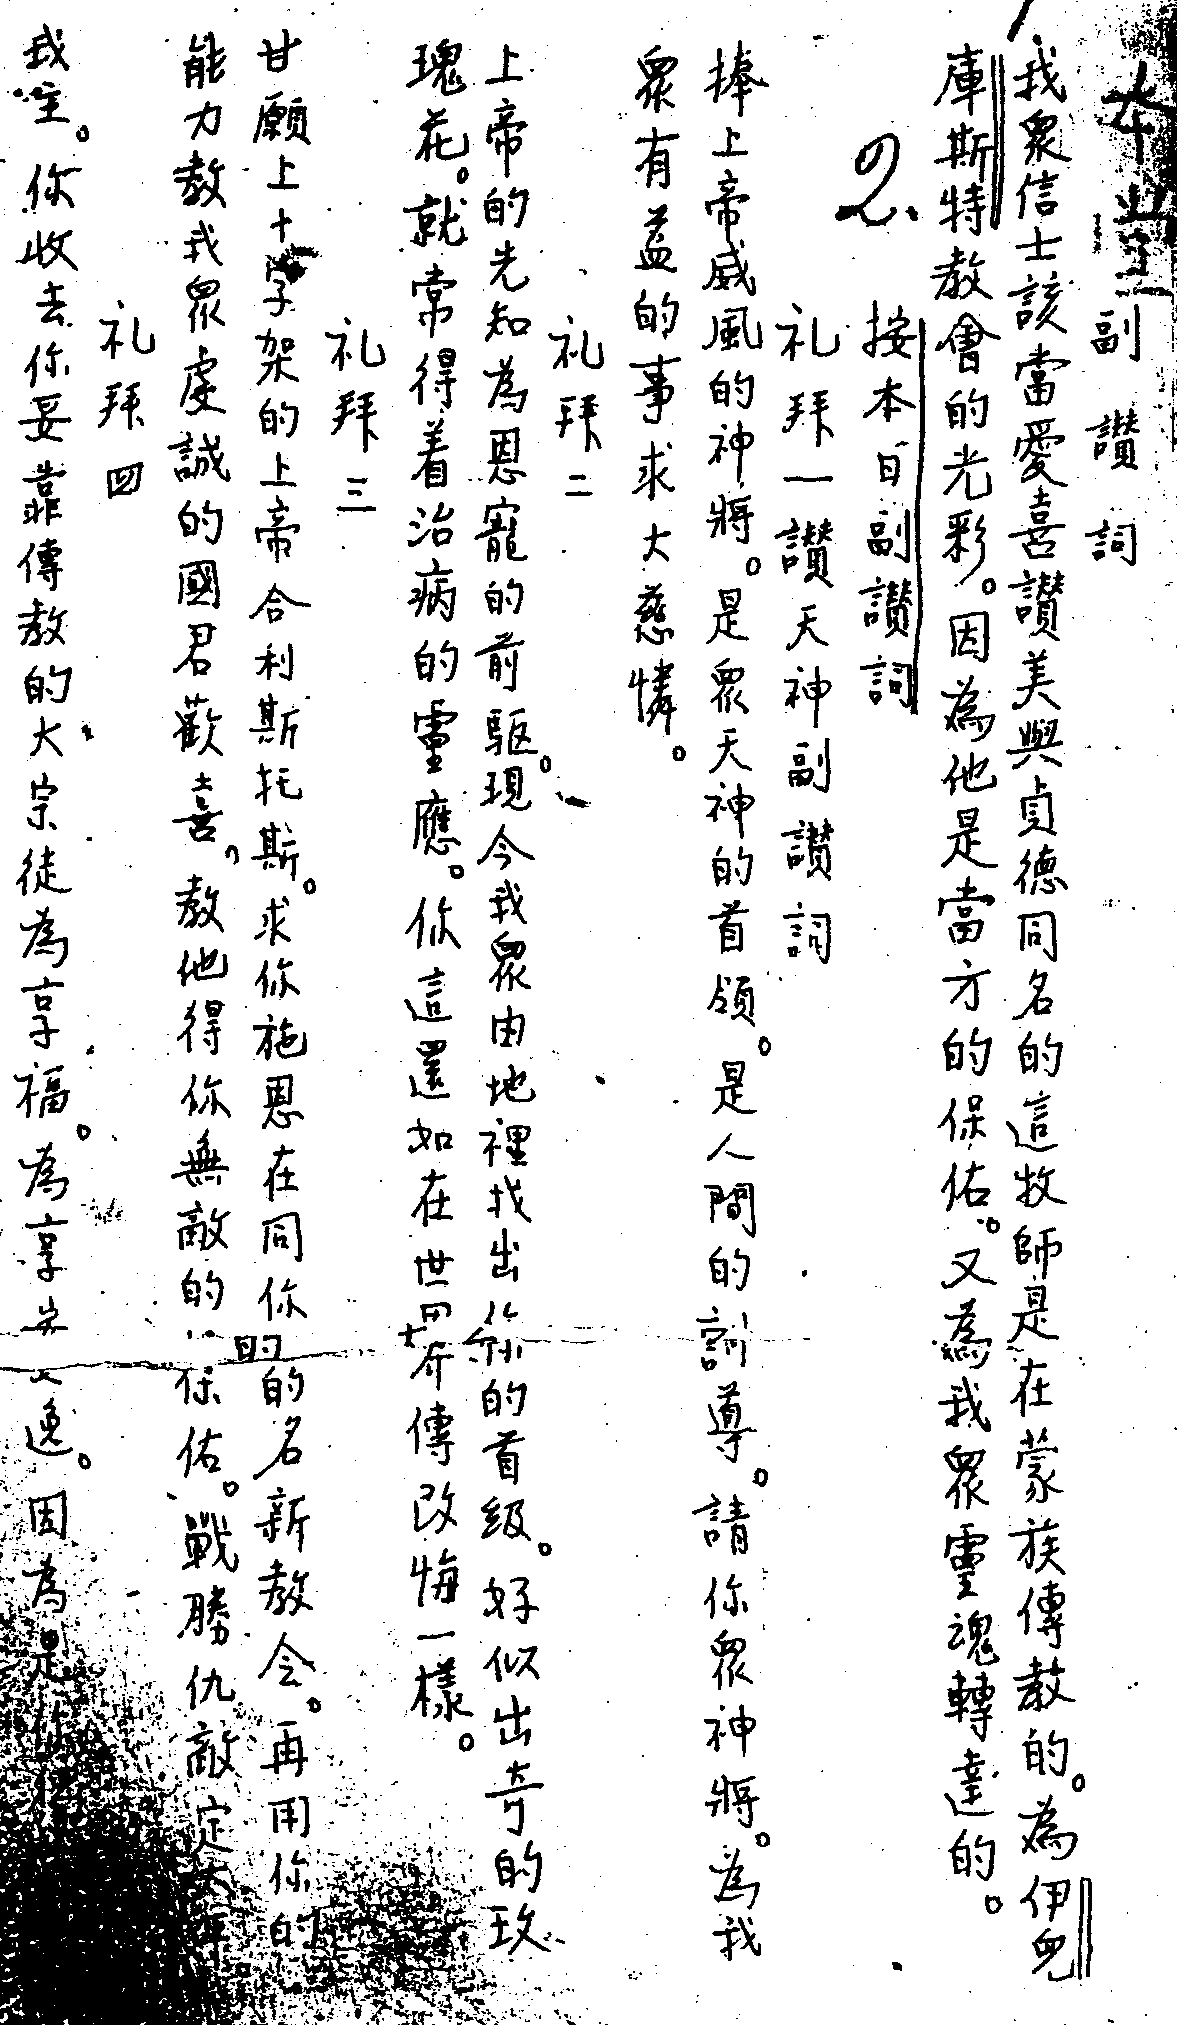 本堂副讚詞
我眾信士該當愛喜讚美與貞德同名的這牧師是在蒙族傳教的。為伊兒
庫斯特教會的光彩。因為他是當方的保佑。又為我眾靈魂轉達的。
2.
按本日副讚詞
礼拜一讚天神副讚詞
捧上帝威風的神將。是眾天神的首領。是人間的訓導。請你眾神將。為我
眾有益的事求大慈憐。
礼拜二
上帝的先知為恩寵的前驱。現今我眾由地裡找出你的首級。好似出奇的玫
瑰花。就常得着治病的靈應。你這還如在世界傳改悔一樣。
礼拜三
甘願上十字架的上帝合利斯托斯。求你施恩在同你的名新教会。再用你的
能力教我眾虔誠的國君歡喜。教他得你無敵的保佑。戰勝仇敵定
礼拜四
我主。你收去你妥靠傳教的大宗徒為享福。為享安逸。因為是你